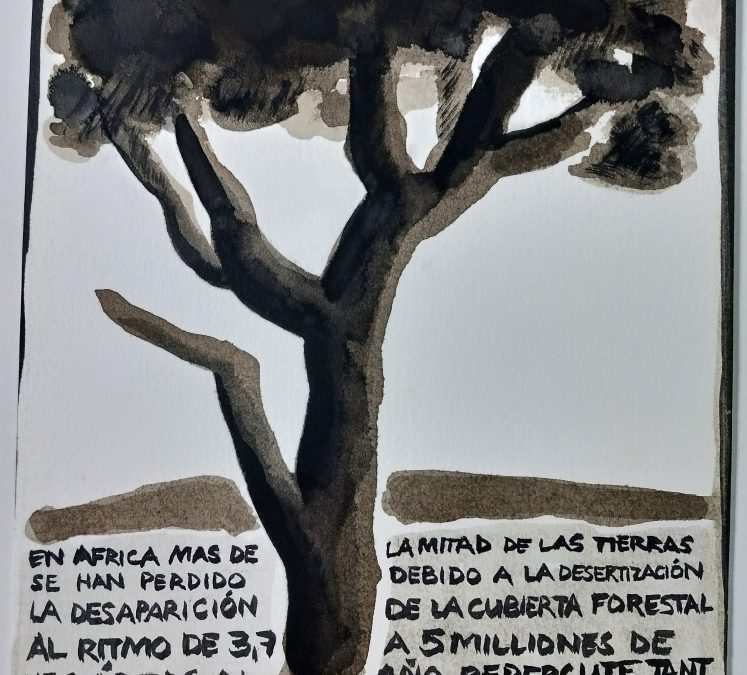 EN AFRICA MAS DE LA MITAD DE LAS TIERRAS
SE HAN PERDIDO DEBIDO A LA DESERTIZACIÓN
LA DESAPARICIÓN DE LA CUBIERTA FORESTAL
AL RITMO DE 3,7 A 5 MILLIONES DE
AÑO REPERCUTE TANT